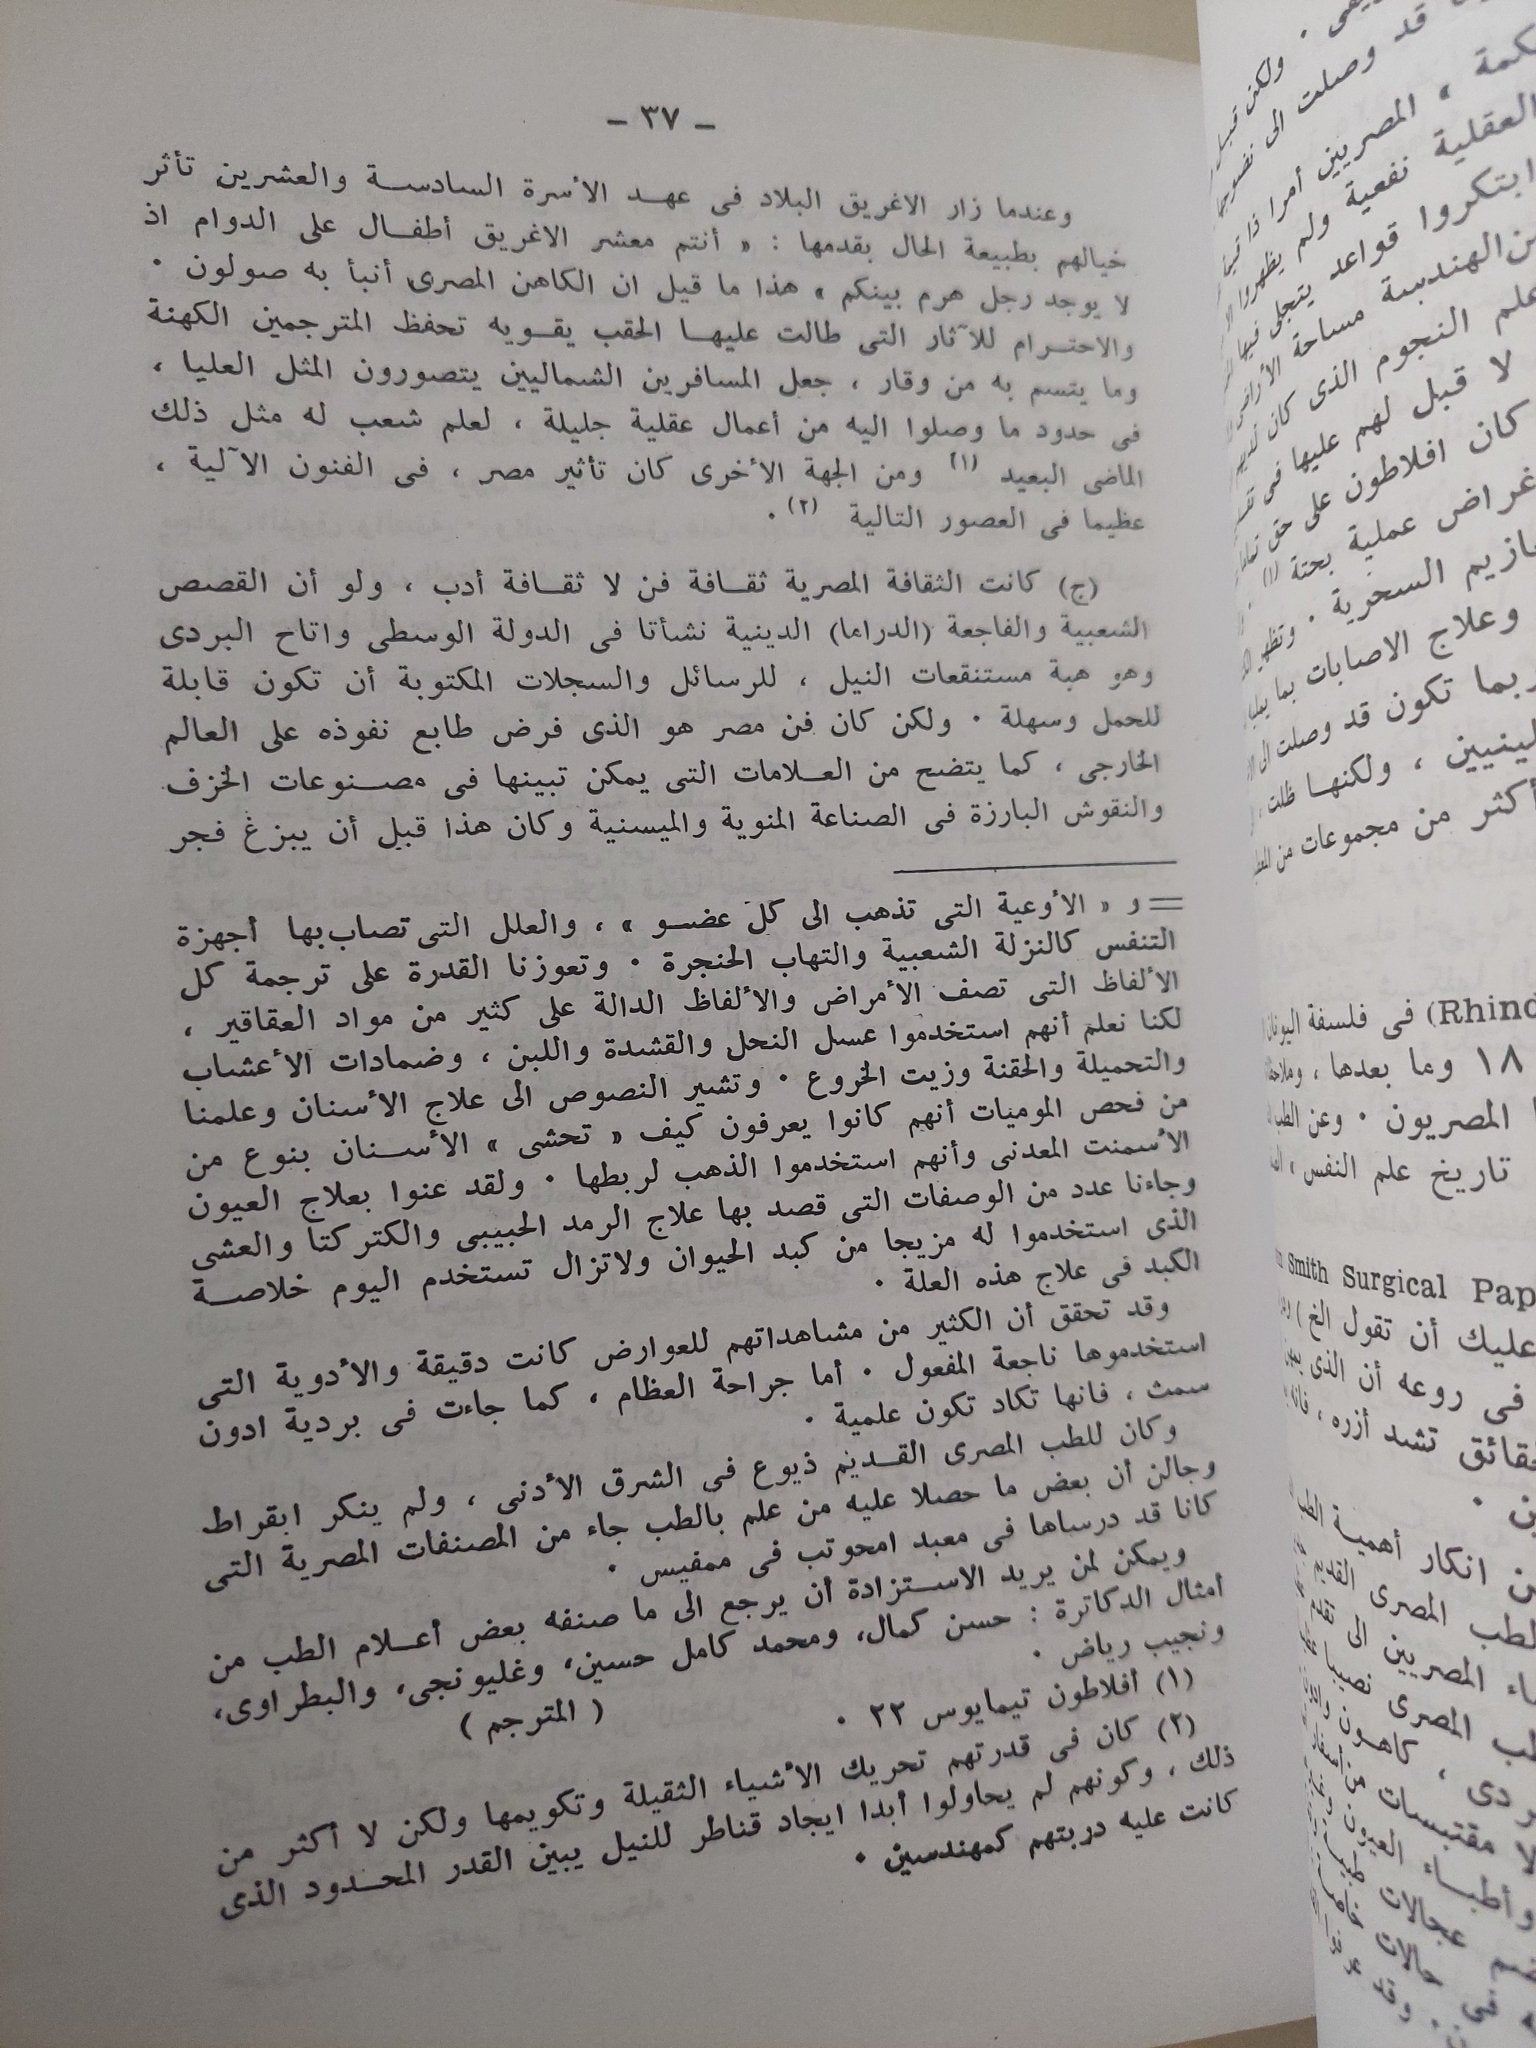 – ٣٧ –
وعندما زار الاغريق البلاد فى عهـد الأسرة السادسـة والعشرين تأثر
خيالهم بطبيعة الحال بقدمها : « أنتم معشر الاغريق أطفـال على الدوام اذ
لا يوجد رجل هرم بينكم » هذا ما قيل ان الكاهن المصرى أنبأ به صولون .
والاحتـرام للآثار التى طالت عليهـا الحقب يقـويه تحفظ المترجمين الكهنة
وما يتسم به من وقار ، جعل المسافرين الشماليين يتصورون المثل العليا ،
فى حدود ما وصلوا اليه من أعمال عقلية جليلة ، لعلم شعب له مثل ذلك
الماضى البعيد (١) ومن الجهة الأخرى كان تأثير مصر ، فى الفنون الآلية ،
عظيما فى العصور التالية (٢) .
(ج) كانت الثقافة المصرية ثقـافة فن لا ثقـافة أدب ، ولو أن القصص
الشعبية والفاجعة (الدراما) الدينية نشأتا فى الدولة الوسطى واتاح البردى
وهو هبة مستنقعات النيل ، للرسائل والسجلات المكتوبة أن تكون قابلة
للحمل وسهلة . ولكن كان فن مصر هو الذى فرض طابع نفوذه على العالم
الخارجى ، كما يتضح من العـلامات التى يمكن تبينها فى مصـنوعات الخزف
والنقوش البارزة فى الصناعة المنوية والميسنية وكان هذا قبل أن يبزغ فجر
= و « الأوعية التى تذهب الى كل عضـو » ، والعلل التى تصاب بها أجهزة
التنفس كالنزلة الشعبية والتهاب الحنجرة . وتعوزنا القدرة على ترجمة كل
الألفاظ التى تصف الأمراض والألفاظ الدالة على كثير من مواد العقاقير ،
لكنا نعلم أنهم استخدموا عسل النحل والقشدة واللبن ، وضمادات الأعشاب
والتحميلة والحقنة وزيت الخروع . وتشير النصوص الى علاج الأسنان وعلمنا
من فحص الموميات أنهم كانوا يعرفون كيف « تحشى » الأسـنان بنوع من
الأسمنت المعدنى وأنهم استخدموا الذهب لربطها . ولقد عنوا بعلاج العيون
وجاءنا عدد من الوصفات التى قصد بها علاج الرمد الحبيبى والكتركتا والعشى
الذى استخدموا له مزيجا من كبد الحيوان ولاتزال تستخدم اليوم خلاصـة
الكبد فى علاج هذه العلة .
وقد تحقق أن الكثير من مشاهداتهم للعوارض كانت دقيقة والأدوية التى
استخدموها ناجعة المفعول . أما جراحة العظام ، كما جاءت فى بردية ادون
سمث ، فانها تكاد تكون علمية .
وكان للطب المصرى القـديم ذيوع فى الشرق الأدنى ، ولم ينكر ابقراط
وجالن أن بعض ما حصلا عليه من علم بالطب جاء من المصنفات المصرية التى
كانا قد درساها فى معبد امحوتب فى ممفيس .
ويمكن لمن يريد الاسـتزادة أن يرجع الى ما صنفه بعض أعـلام الطب من
أمثال الدكاترة : حسن كمال، ومحمد كامل حسين، وغليونجى، والبطراوى،
ونجيب رياض .
( المترجم )
(١) أفلاطون تيمايوس ٢٢ .
(٢) كان فى قدرتهم تحريك الأشياء الثقيلة وتكويمها ولكن لا أكثر من
ذلك ، وكونهم لم يحاولوا أبدا ايجاد قناطر للنيل يبين القدر المحـدود الذى
كانت عليه دربتهم كمهندسين .
قد وصلت الى
المصريين أمرا ذا
العقلية نفعية ولم يظهروا
ابتكروا قواعد يتجلى فيها
الهندسة مساحة الأراضى
علم النجوم الذى كان
لا قبل لهم عليها فى
كان افلاطون على حق
أغراض عملية بحتة (١) .
السحرية . وتظهر
وعلاج الاصابات بما
ربما تكون قد وصلت الى
، ولكنها ظلت
أكثر من مجموعات من
(Rhind فى فلسفة اليونان
١٨ وما بعدها ،
المصريون . وعن الطب
تاريخ علم النفس »
Smith Surgical Pap
عليك أن تقول الخ )
فى روعه أن الذى
تشد أزره ،
انكار أهمية الطب
الطب المصرى القديم
المصريين الى
المصرى نصيبا
مقتبسات من
وأطبـاء العيون
عجالات
حالات